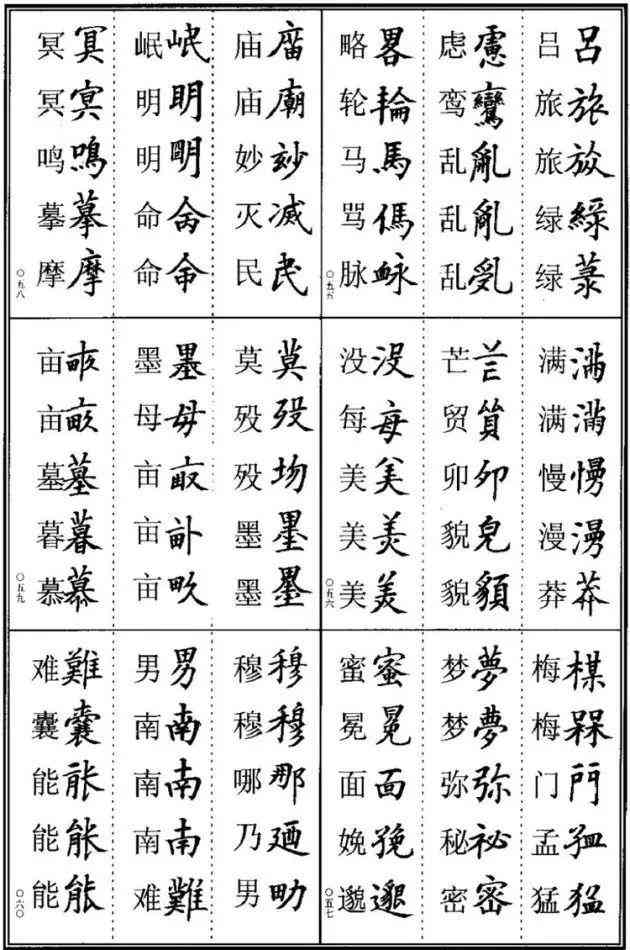 吕 呂
旅 旅
旅
绿 綠
绿 菉
虑 慮
鸾 鸞
乱 亂
乱 亂
乱
略 畧
轮 輪
马 馬
骂 傌
脉 䘑
〇五五
满 滿
满 滿
慢 慢
漫 漫
莽 莽
芒 芒
贸 貿
卯 夘
貌 皃
貌
没 没
每 每
美 美
美 羙
美 羙
〇五六
梅 楳
梅 槑
门 門
孟
猛 猛
梦 夢
梦 夢
弥 弥
秘 祕
密 密
蜜 蜜
冕 冕
面 面
娩
邈 邈
〇五七
庙 庿
庙 廟
妙 玅
灭 滅
民
岷 岷
明 明
明 朙
命
命 命
冥 冥
冥 冥
鸣 鳴
摹 摹
摩 摩
〇五八
莫 莫
殁 歿
殁 歾
墨 墨
墨 墨
墨 墨
母 母
亩
亩
亩 畝
亩
亩
墓 墓
暮 暮
慕 慕
〇五九
穆 穆
穆 穆
哪 那
乃 廼
男
男 男
南 南
南 南
南 南
难 難
难 難
囊 囊
能
能
能 能
〇六〇